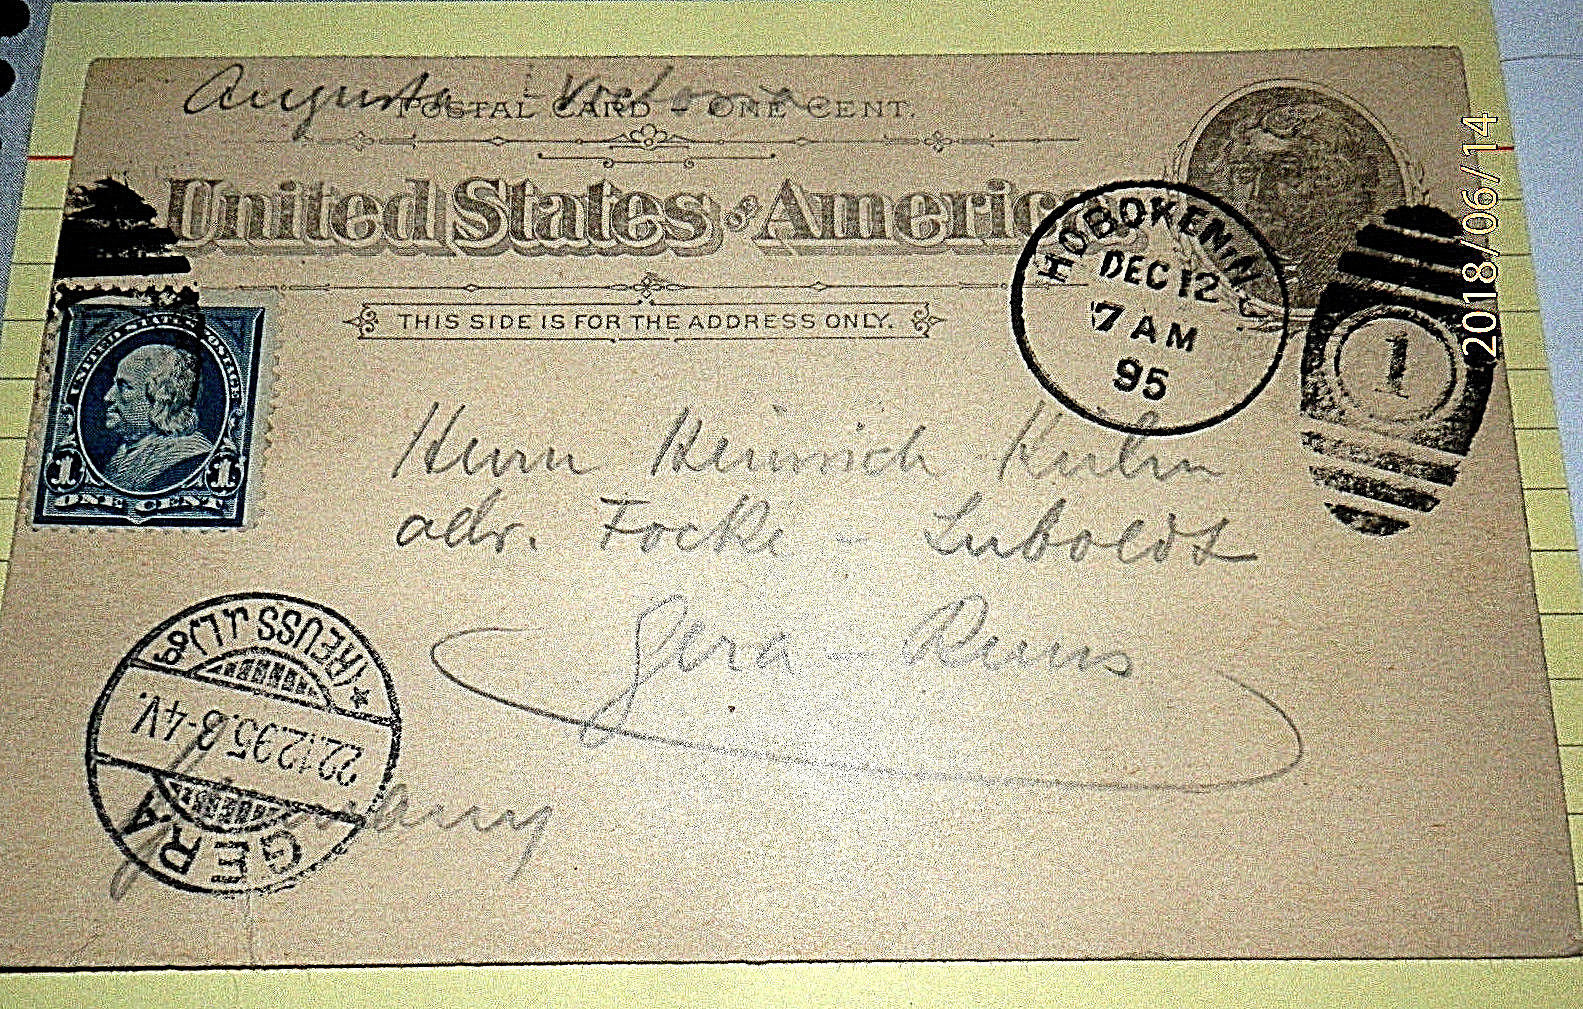 Augusta - Victoria
POSTAL CARD - ONE CENT.
United States OF America
THIS SIDE IS FOR THE ADDRESS ONLY.
HOBOKEN. N.J.
DEC 12
7 AM
95
1
UNITED STATES POSTAGE
1 1
ONE CENT
Herrn Heinrich Kuhn
adr. Focke - Luboldt
Gera - Reuss
Germany
GERA
22.12.95. 3-4V.
(REUSS J.L.)
2018/06/14